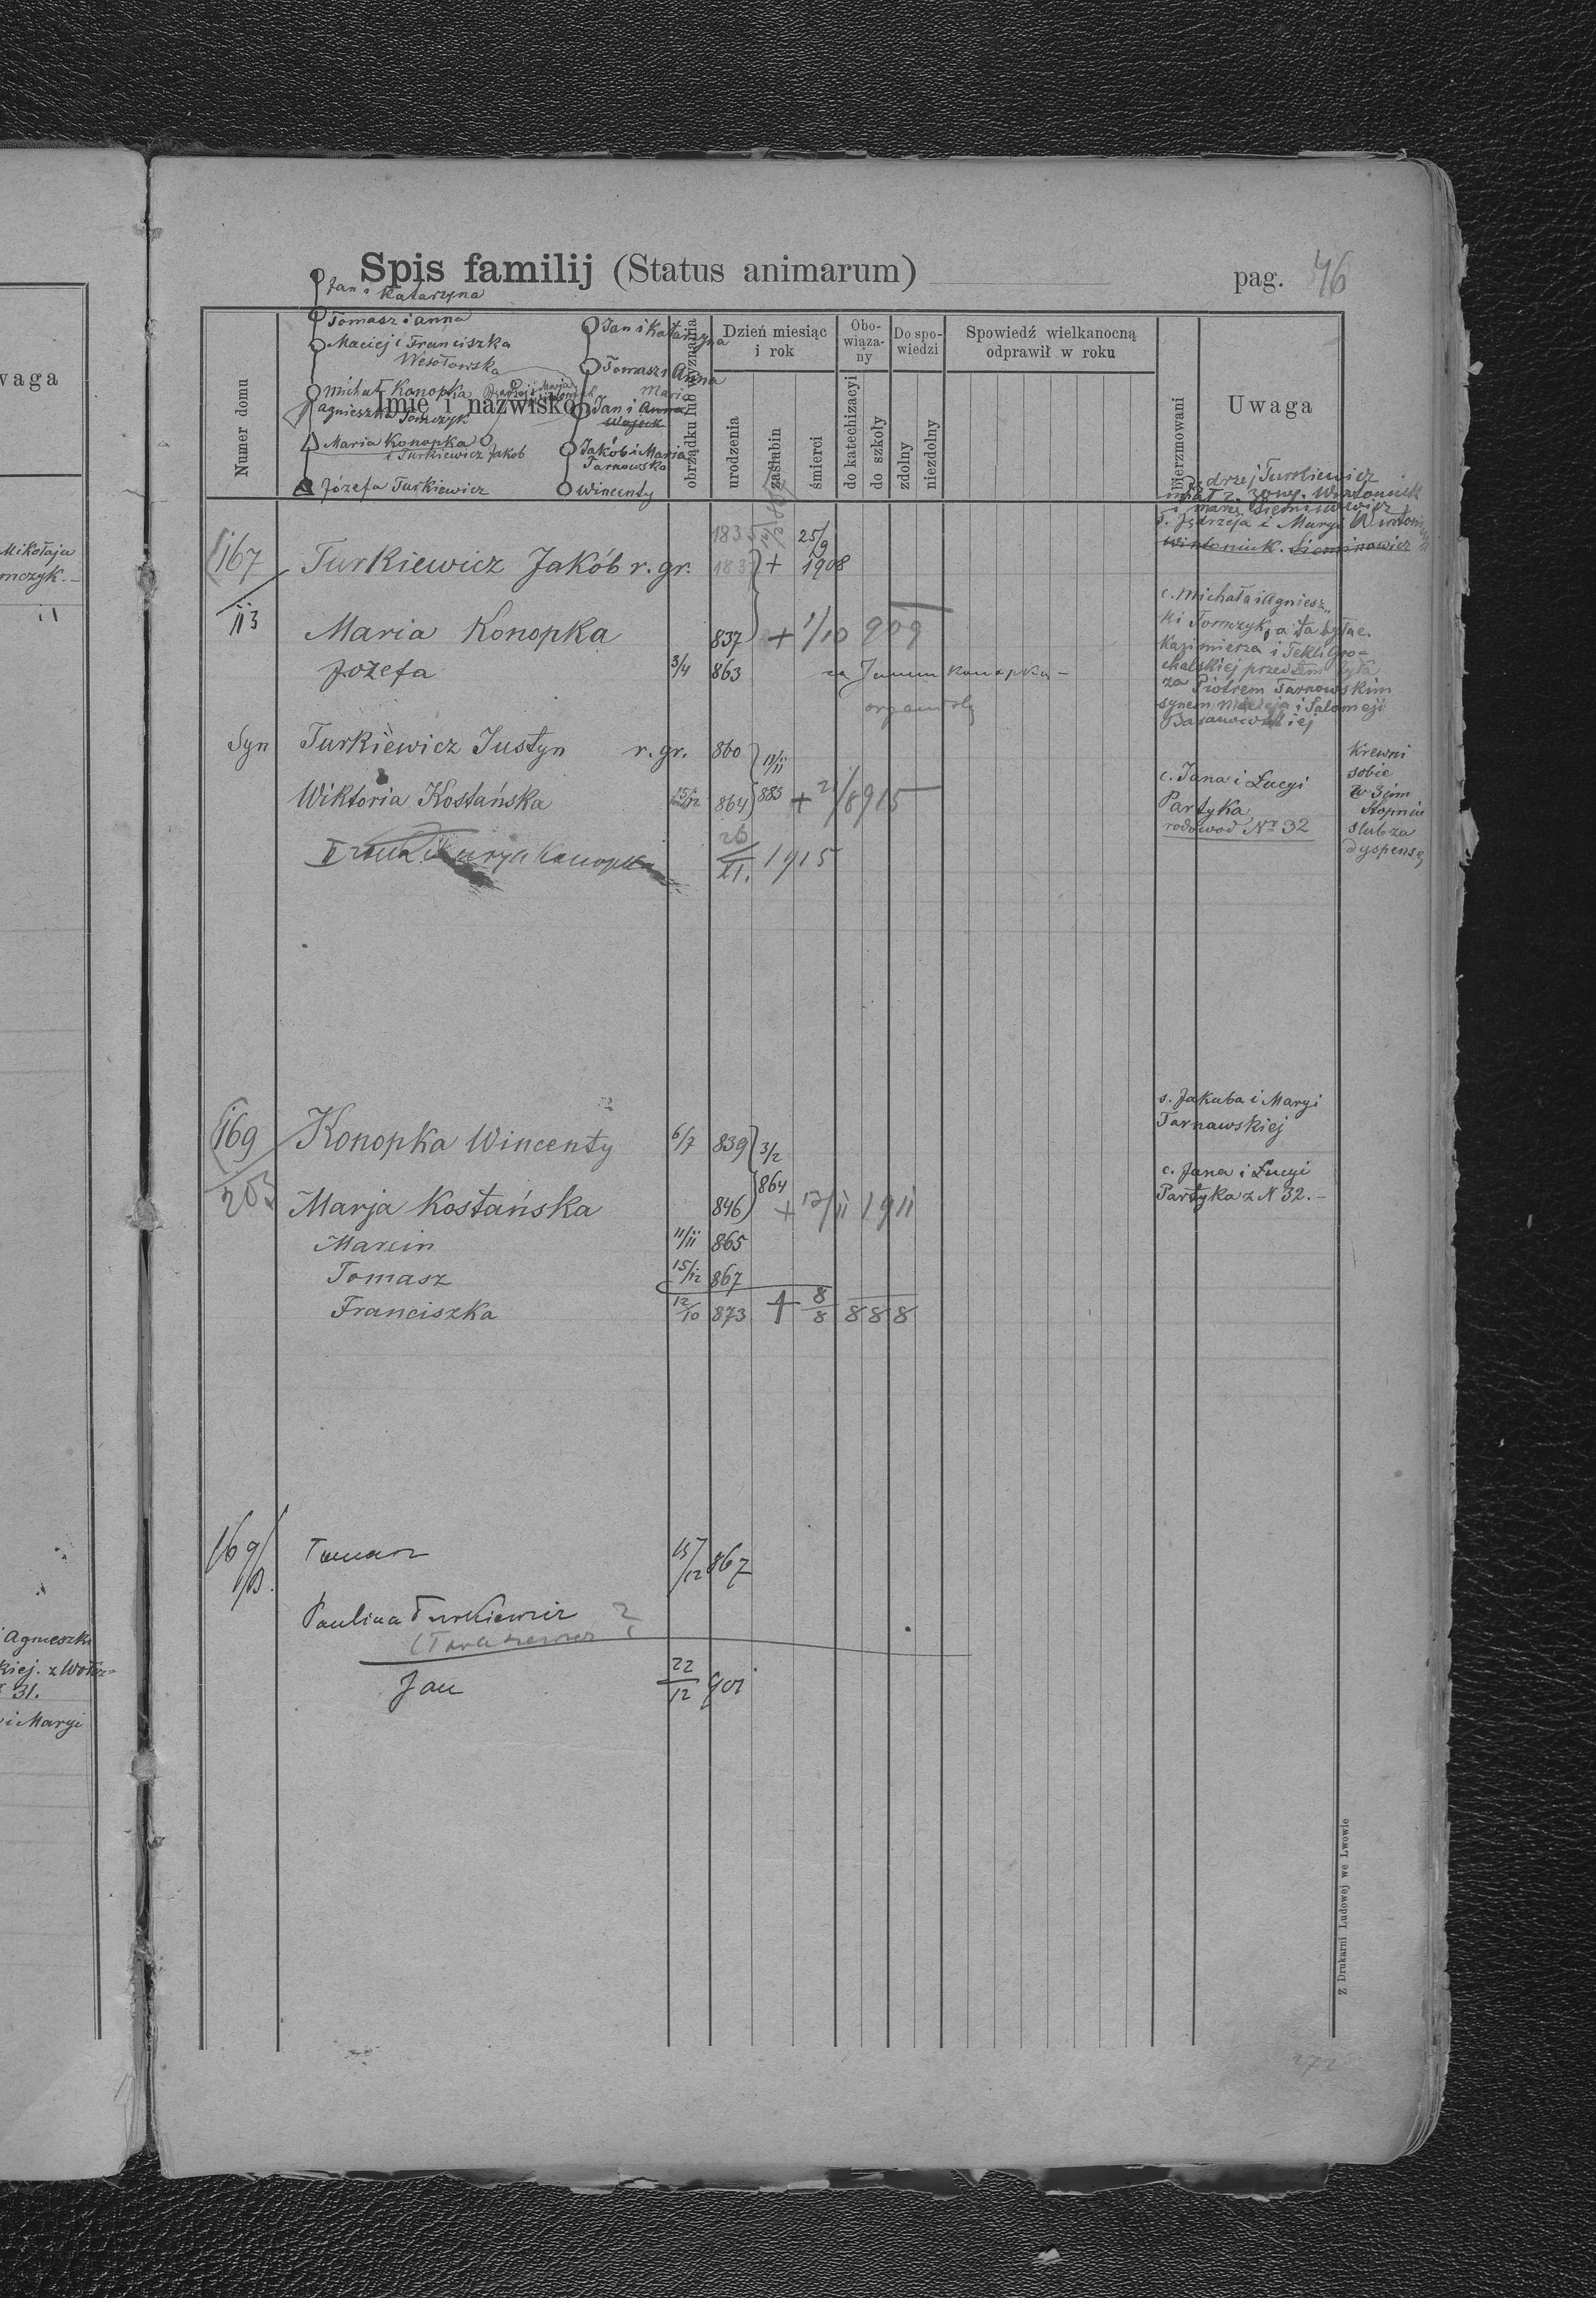 waga
Mikołaja
mczyk.-
Agnieszki
31.
i Maryi
Spis familij (Status animarum)
pag. 46
Jan i Katarzyna
Tomasz i Anna
Maciej i Franciszka
Wesołowska
Michał Konopka
Agnieszka Tomczyk
Maria Konopka
i Turkiewicz Jakob
Józefa Turkiewicz
Jan i Katarzyna
Tomasz i Anna
Maria
Jan i Anna
Wojcik
Jakób i Maria
Tarnowska
Wincenty
Numer domu
Imię i nazwisko
obrządku lub wyznania
Dzień miesiąc
i rok
urodzenia
zaślubin
śmierci
Obo-
wiąza-
ny
do katechizacyi
do szkoły
Do spo-
wiedzi
zdolny
niezdolny
Spowiedź wielkanocną
odprawił w roku
bierzmowani
Uwaga
Jędrzej Turkiewicz
s. Jędrzeja i Maryi
Wintoniuk. Sieminowicz
167 Turkiewicz Jakób r. gr. 1835 + 25/9 1908
113 Maria Konopka 837 + 1/10 909
c. Michała i Agniesz-
ki Tomczyk, a ta była c.
Kazimierza i Tekli Gro-
chalskiej przedtem była
za Piotrem Tarnowskim
synem Macieja i Salomeji
Baranowskiej
Jozefa 3/4 863 za Janem Konopka -
organistą
Syn Turkiewicz Justyn r. gr. 860 11/11 883
Wiktoria Kostańska 15/12 864 + 21/8 915
c. Jana i Łucyi
Partyka
rodowod Nr 32
Krewni
sobie
w 3cim
stopniu
slub za
dyspensą
II żona Marya Konopka 26/XI. 1915
169 Konopka Wincenty 6/7 839 3/2 864
s. Jakuba i Maryi
Tarnawskiej
203 Marja Kostańska 846 + 17/11 1911
c. Jana i Łucyi
Partyka z N 32.-
Marcin 11/11 865
Tomasz 15/12 867
Franciszka 12/10 873 + 8/8 888
169/B. Tomasz 15/12 867
Paulina Turkiewicz ?
Jan 22/12 901
Z Drukarni Ludowej we Lwowie
272